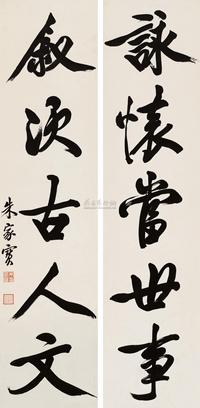 詠懷當世事
敘次古人文
朱家寶